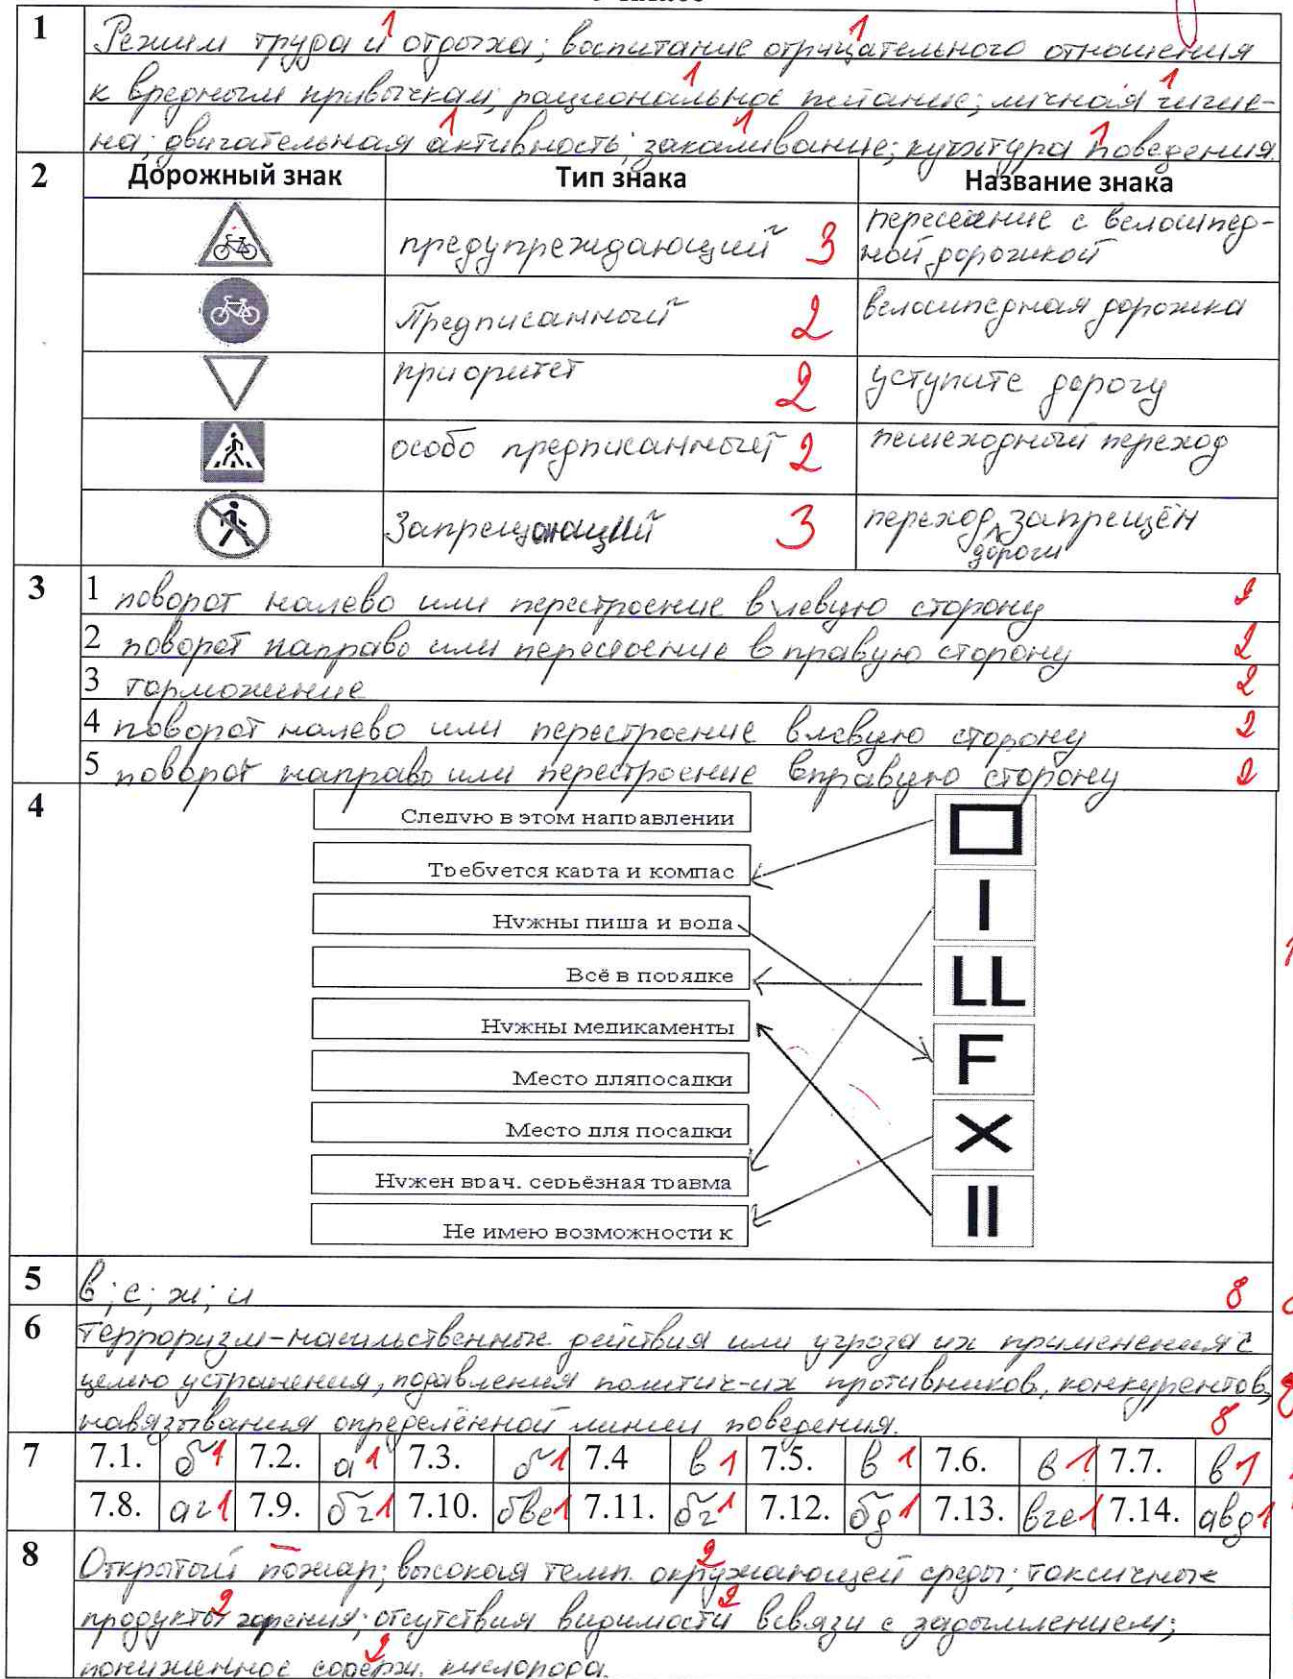 1
Режим труда и отдыха; воспитание отрицательного отношения
к вредным привычкам; рациональное питание; личная гигие-
на; двигательная активность; закаливание; культура поведения.
1 1 1 1 1 1 1
2 Дорожный знак Тип знака Название знака
предупреждающий 3 пересеание с велосипед-
ной дорожкой
Предписанный 2 велосипедная дорожка
приоритет 2 уступите дорогу
особо предписанный 2 пешеходный переход
Запрещающий 3 переход дороги запрещён
3
1 поворот налево или перестроение в левую сторону 2
2 поворот направо или перестоение в правую сторону 2
3 торможение 2
4 поворот налево или перестроение в левую сторону 2
5 поворот направо или перестроение вправую сторону 2
4
Следую в этом направлении
Требуется карта и компас
Нужны пища и вода
Всё в порядке
Нужны медикаменты
Место дляпосадки
Место для посадки
Нужен врач, серьёзная травма
Не имею возможности к
I
LL
F
X
II
5 в; е; ж; и 8
6 Терроризм-насильственные действия или угроза их применения с
целью устранения, подавления политич-их противников, конкурентов,
навязывания определённой линии поведения. 8
7 7.1. б 1 7.2. а 1 7.3. б 1 7.4 в 1 7.5. в 1 7.6. в 1 7.7. в 1
7.8. аг 1 7.9. бг 1 7.10. бве 1 7.11. бг 1 7.12. бд 1 7.13. вге 1 7.14. авд 1
8 Открытый пожар; высокая темп. окружающей среды; токсичные
продукты горения; отсутствия видимости всвязи с задымлением;
пониженное содерж. кислорода.
2 2 2 2